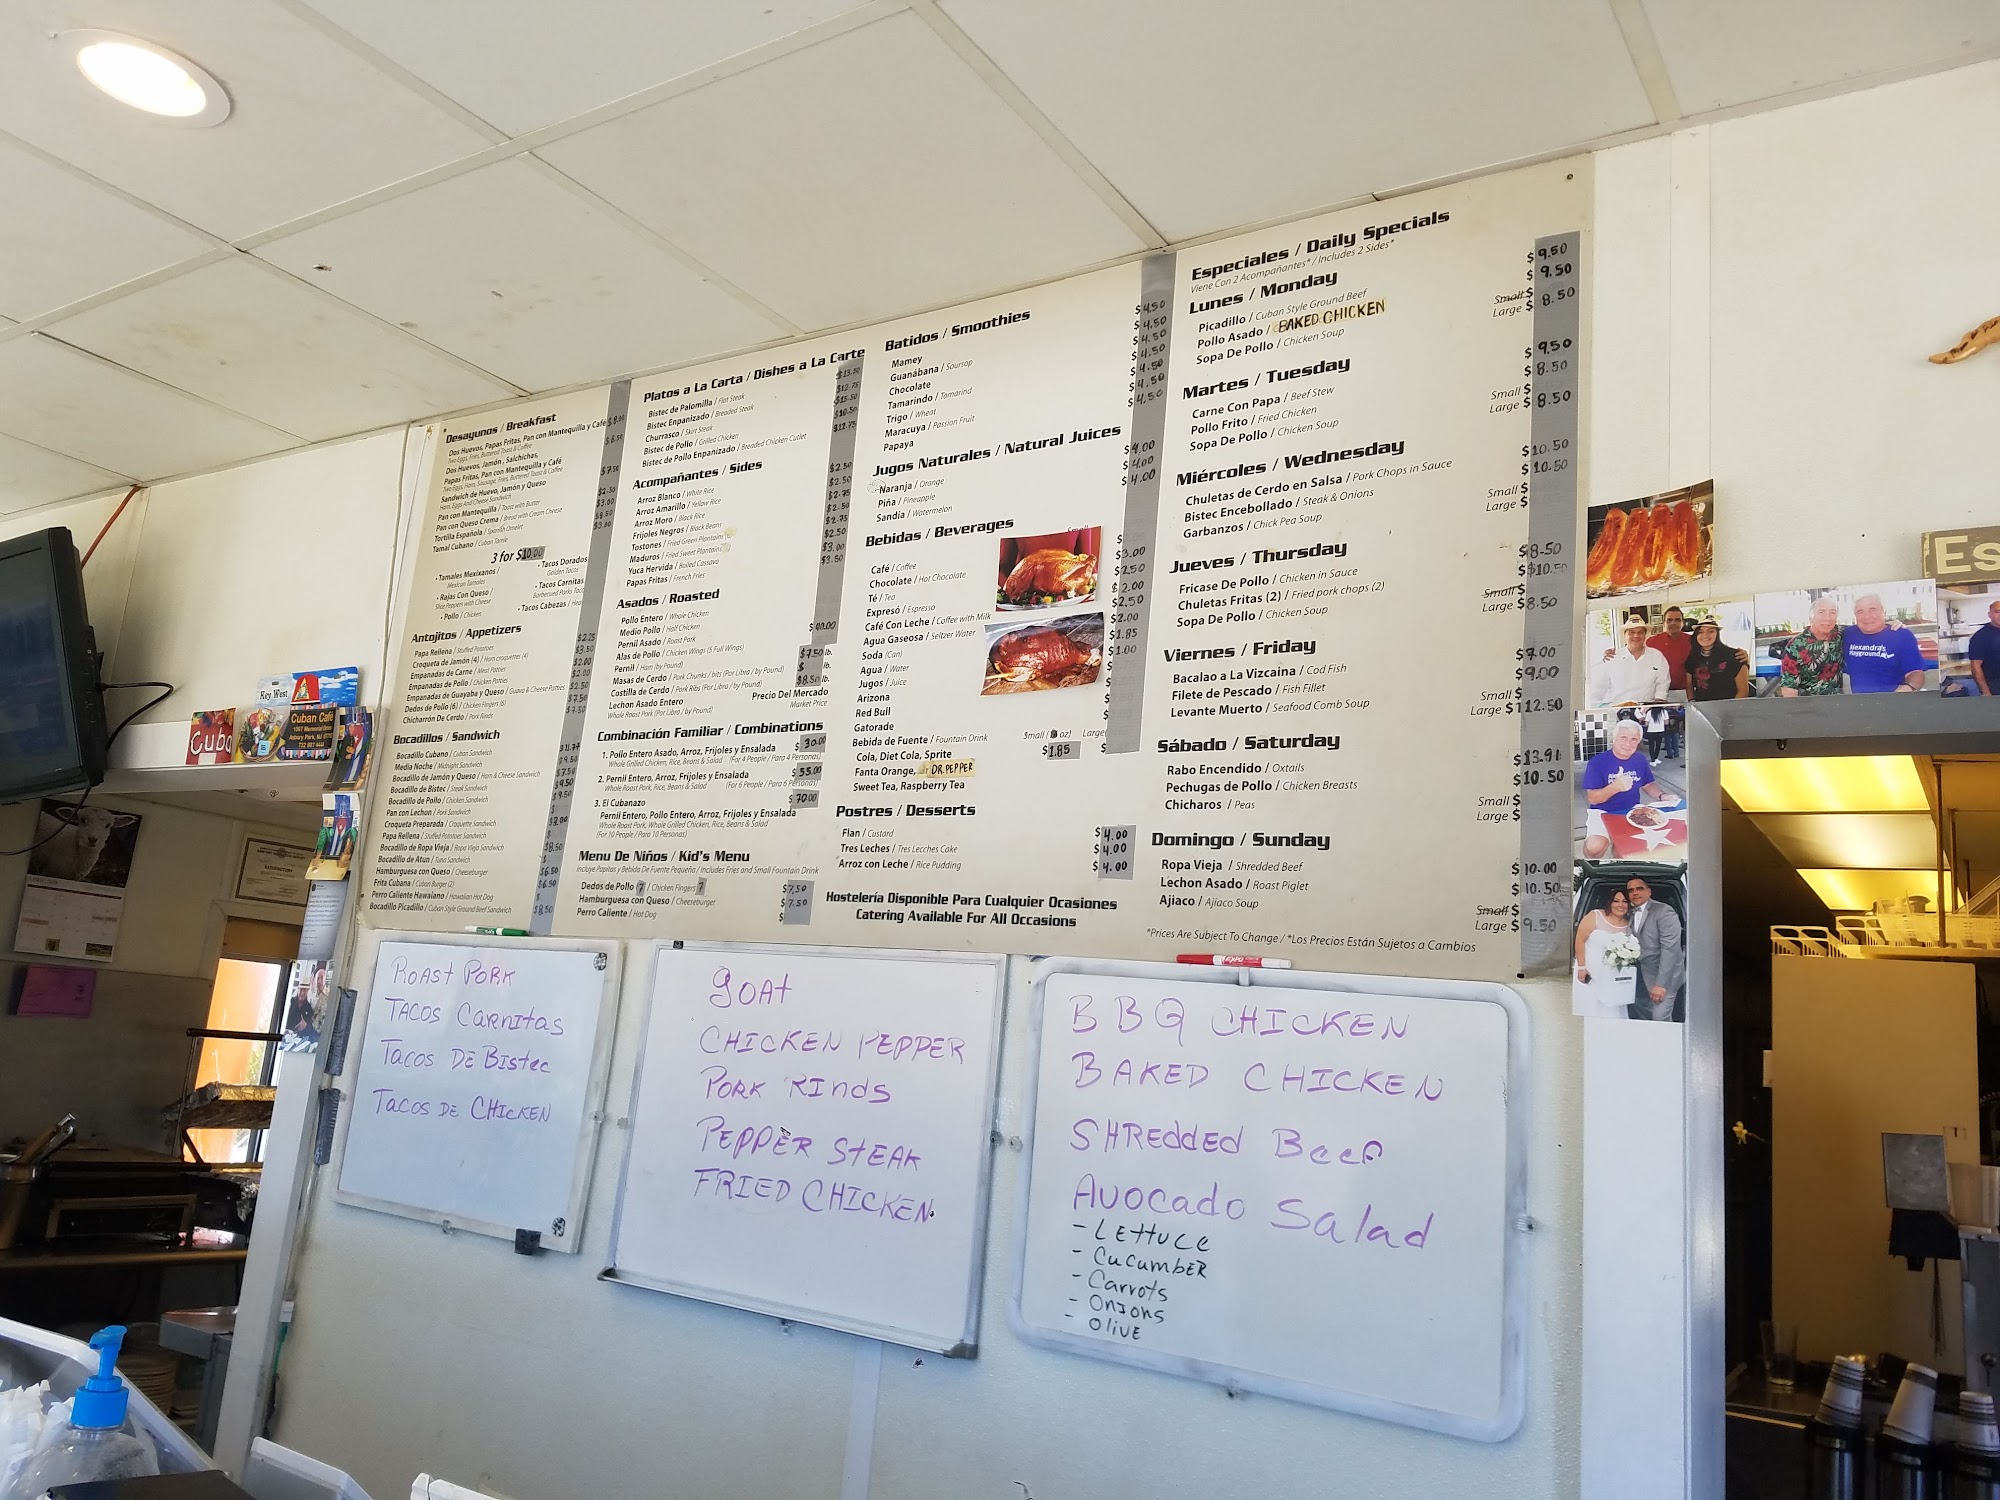 Desayunos / Breakfast
Dos Huevos, Papas Fritas, Pan con Mantequilla y Café
Two Eggs, Fries, Buttered Toast & Coffee
Dos Huevos, Jamón, Salchichas,
Papas Fritas, Pan con Mantequilla y Café
Two Eggs, Ham, Sausage, Fries, Buttered Toast & Coffee
Sandwich de Huevo, Jamón y Queso $7.50
Ham, Eggs And Cheese Sandwich
Pan con Mantequilla / Toast with Butter $2.50
Pan con Queso Crema / Bread with Cream Cheese $3.00
Tortilla Española / Spanish Omelet
Tamal Cubano / Cuban Tamle
3 for $10.00
• Tamales Mexixanos /
Mexican Tamales
• Rajas Con Queso /
Slice Peppers with Cheese
• Pollo / Chicken
• Tacos Dorados
Golden Tacos
• Tacos Carnitas
Barbecued Porks Taco
• Tacos Cabezas /
Antojitos / Appetizers
Papa Rellena / Stuffed Potatoes $2.25
Croqueta de Jamón (4) / Ham croquettes (4) $3.50
Empanadas de Carne / Meat Patties $2.00
Empanadas de Pollo / Chicken Patties $2.00
Empanadas de Guayaba y Queso / Guava & Cheese Patties $2.50
Dedos de Pollo (6) / Chicken Fingers (6) $7.50
Chicharrón De Cerdo / Pork Rinds $7.50
Bocadillos / Sandwich
Bocadillo Cubano / Cuban Sandwich
Media Noche / Midnight Sandwich
Bocadillo de Jamón y Queso / Ham & Cheese Sandwich
Bocadillo de Bistec / Steak Sandwich
Bocadillo de Pollo / Chicken Sandwich
Pan con Lechon / Pork Sandwich
Croqueta Preparada / Croquette Sandwich
Papa Rellena / Stuffed Potatoes Sandwich
Bocadillo de Ropa Vieja / Ropa Vieja Sandwich
Bocadillo de Atun / Tuna Sandwich
Hamburguesa con Queso / Cheeseburger
Frita Cubana / Cuban Burger (2)
Perro Caliente Hawaiano / Hawaiian Hot Dog
Bocadillo Picadillo / Cuban Style Ground Beef Sandwich $8.50
Platos a La Carta / Dishes a La Carte
Bistec de Palomilla / Flat Steak $13.50
Bistec Enpanizado / Breaded Steak $12.75
Churrasco / Skirt Steak $15.50
Bistec de Pollo / Grilled Chicken $10.50
Bistec de Pollo Enpanizado / Breaded Chicken Cutlet $12.75
Acompañantes / Sides
Arroz Blanco / White Rice $2.50
Arroz Amarillo / Yellow Rice $2.50
Arroz Moro / Black Rice $2.75
Frijoles Negros / Black Beans $2.50
Tostones / Fried Green Plantains $2.75
Maduros / Fried Sweet Plantains $2.50
Yuca Hervida / Boiled Cassava $3.00
Papas Fritas / French Fries $3.50
Asados / Roasted
Pollo Entero / Whole Chicken
Medio Pollo / Half Chicken
Pernil Asado / Roast Pork
Alas de Pollo / Chicken Wings (5 Full Wings)
Pernil / Ham (by Pound) $7.50 lb.
Masas de Cerdo / Pork Chunks / bits (Por Libra / by Pound) $ lb.
Costilla de Cerdo / Pork Ribs (Por Libra / by Pound) $8.50 lb.
Lechon Asado Entero Precio Del Mercado
Whole Roast Pork (Por Libra / by Pound) Market Price
Combinación Familiar / Combinations
1. Pollo Entero Asado, Arroz, Frijoles y Ensalada $30.00
Whole Grilled Chicken, Rice, Beans & Salad (For 4 People / Para 4 Personas)
2. Pernil Entero, Arroz, Frijoles y Ensalada $55.00
Whole Roast Pork, Rice, Beans & Salad (For 6 People / Para 6 Personas)
3. El Cubanazo $70.00
Pernil Entero, Pollo Entero, Arroz, Frijoles y Ensalada
Whole Roast Pork, Whole Grilled Chicken, Rice, Beans & Salad
(For 10 People / Para 10 Personas)
Menu De Niños / Kid's Menu
Incluye Papitas y Bebida De Fuente Pequeña / Includes Fries and Small Fountain Drink
Dedos de Pollo 7 / Chicken Fingers 7 $7.50
Hamburguesa con Queso / Cheeseburger $7.50
Perro Caliente / Hot Dog $
Batidos / Smoothies
Mamey $4.50
Guanábana / Soursop $4.50
Chocolate $4.50
Tamarindo / Tamarind $4.50
Trigo / Wheat $4.50
Maracuya / Passion Fruit $4.50
Papaya $4.50
Jugos Naturales / Natural Juices
Naranja / Orange $4.00
Piña / Pineapple $4.00
Sandía / Watermelon $4.00
Bebidas / Beverages
Small
Café / Coffee
Chocolate / Hot Chocolate $3.00
Té / Tea $2.50
Expresó / Espresso $2.00
Café Con Leche / Coffee with Milk $2.50
Agua Gaseosa / Seltzer Water $2.00
Soda (Can) $1.85
Agua / Water $1.00
Jugos / Juice
Arizona
Red Bull
Gatorade
Bebida de Fuente / Fountain Drink Small ( oz) Large
Cola, Diet Cola, Sprite $1.85 $
Fanta Orange, DR. PEPPER
Sweet Tea, Raspberry Tea
Postres / Desserts
Flan / Custard $4.00
Tres Leches / Tres Lecches Cake $4.00
Arroz con Leche / Rice Pudding $4.00
Hostelería Disponible Para Cualquier Ocasiones
Catering Available For All Occasions
Especiales / Daily Specials
Viene Con 2 Acompañantes* / Includes 2 Sides*
Lunes / Monday
Picadillo / Cuban Style Ground Beef $9.50
Pollo Asado / BAKED CHICKEN $9.50
Sopa De Pollo / Chicken Soup Small $
Large $8.50
Martes / Tuesday
Carne Con Papa / Beef Stew $9.50
Pollo Frito / Fried Chicken $8.50
Sopa De Pollo / Chicken Soup Small $
Large $8.50
Miércoles / Wednesday
Chuletas de Cerdo en Salsa / Pork Chops in Sauce $10.50
Bistec Encebollado / Steak & Onions $10.50
Garbanzos / Chick Pea Soup Small $
Large $
Jueves / Thursday
Fricase De Pollo / Chicken in Sauce $8.50
Chuletas Fritas (2) / Fried pork chops (2) $10.50
Sopa De Pollo / Chicken Soup Small $
Large $8.50
Viernes / Friday
Bacalao a La Vizcaina / Cod Fish $9.00
Filete de Pescado / Fish Fillet $9.00
Levante Muerto / Seafood Comb Soup Small $
Large $12.50
Sábado / Saturday
Rabo Encendido / Oxtails $13.91
Pechugas de Pollo / Chicken Breasts $10.50
Chicharos / Peas Small $
Large $
Domingo / Sunday
Ropa Vieja / Shredded Beef $10.00
Lechon Asado / Roast Piglet $10.50
Ajiaco / Ajiaco Soup Small $
Large $9.50
*Prices Are Subject To Change / *Los Precios Están Sujetos a Cambios
ROAST PORK
TACOS CARNITAS
TACOS DE BISTEC
TACOS DE CHICKEN
GOAT
CHICKEN PEPPER
PORK RINDS
PEPPER STEAK
FRIED CHICKEN
EXPO
BBQ CHICKEN
BAKED CHICKEN
SHREDDED BEEF
AVOCADO Salad
- LETTUCE
- CUCUMBER
- Carrots
- ONIONS
- OLIVE
Key West
Cuba
Cuban Café
1007 Memorial Drive
Asbury Park, NJ
Alexandra's
Playground
Es